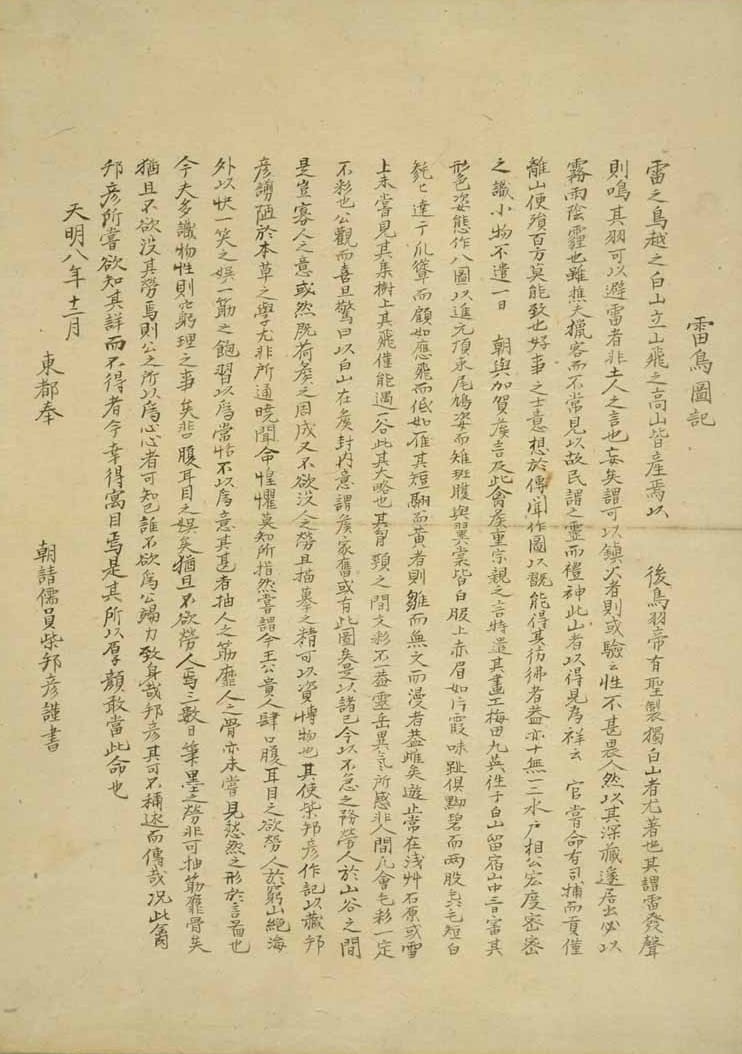 雷鳥圖記
雷之鳥越之白山立山飛之高山皆産焉以　後鳥羽帝有聖製獨白山者尤著也其謂雷發聲
則鳴其羽可以避雷者非土人之言也妄矣謂可以鎮火者則或驗云性不甚畏人然以其深藏邃居出必以
霧雨陰霾也雖樵夫獵客而不常見以故民謂之靈而禮神此山者以得見為祥云　官嘗命有司捕而貢僅
離山便殞百方莫能致也好事之士意想於傳聞作圖以覬能得其彷彿者蓋亦十無一二水戶相公宏度密密
之識小物不遺一日　朝與加賀矦言及此禽矦重宗親之言特遣其畫工梅田九英往于白山留宿山中三日審其
形色姿態作八圖以進元頂承尾鳩姿而雉斑腹與翼裳皆白服上赤眉如片霞味趾俱黝碧而两股毛短白
毿々達于爪聳而顧如應飛而低如雀其短翮而黄者則雛而無文而漫者蓋雌矣遊止常在浅艸石原或雪
上未嘗見其集樹上其飛僅能過一谷此其大略也其背頸之間文彩不一蓋靈岳異氣所感非人間凡禽毛彩一定
不移也公觀而喜且驚曰以白山在矦封内意謂矦家舊或有此圖矣是以諸已今以不急之務勞人於山谷之間
是豈寡人之意哉然既荷矦之周成又不欲没人之勞且描摹之精可以資博物也其使柴邦彦作記以藏邦
彦謭陋於本草之學尤非所通曉聞命惶懼莫知所措然嘗謂今王公貴人肆口腹耳目之欲勞人於窮山絶海
外以快一笑之娯一筋之飽習以為常恬不以為意其甚者抽人之筋靡人之骨亦未嘗見愁然之形於言面也
今夫多識物性則窮理之事矣非口腹耳目之娯矣猶且不欲勞人焉三數日筆墨之勞非可抽筋靡骨矣
猶且不欲没其勞焉則公之所以為心者可知已誰不欲為公竭力致身哉邦彦其可不稱述而傳哉况此禽
邦彦所嘗欲知其詳而不得者今幸得寓目焉是其所以厚顏敢當此命也
天明八年十二月
東都奉　朝請儒員柴邦彦謹書